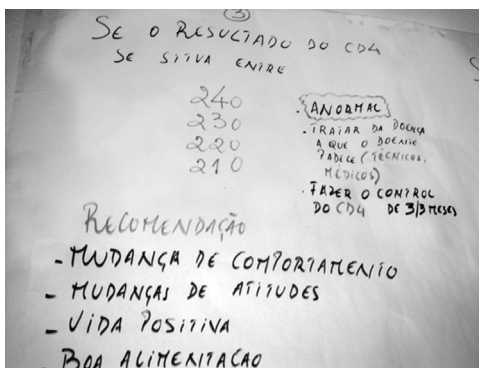 3
SE O RESULTADO DO CD4
SE SITUA ENTRE
240
230
220
210
. ANORMAL
. TRATAR DA DOENÇA
A QUE O DOENTE
PADECE (TÉCNICOS,
MÉDICOS)
. FAZER O CONTROL
DO CD4 DE 3/3 MESES
RECOMENDAÇÃO
- MUDANÇA DE COMPORTAMENTO
- MUDANÇAS DE ATITUDES
- VIDA POSITIVA
. BOA ALIMENTAÇÃO